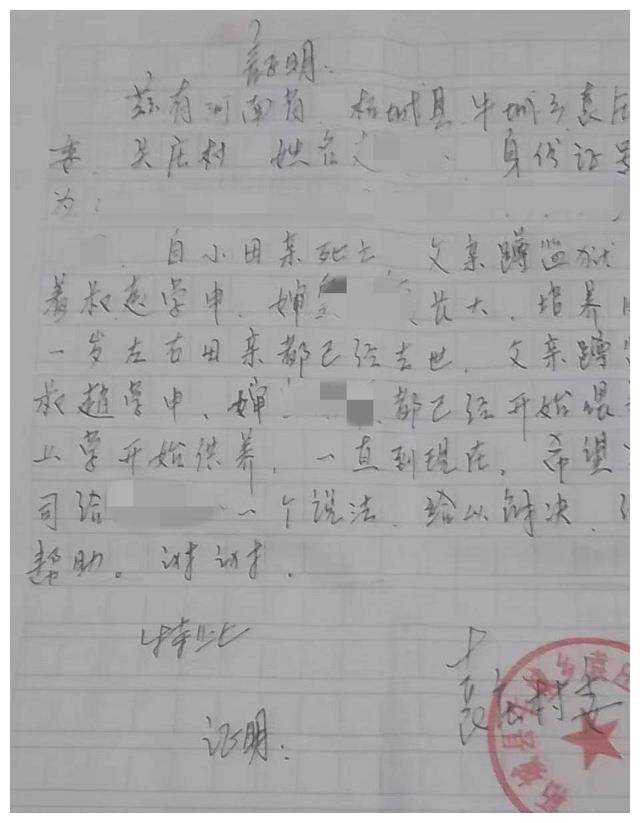 证明:
兹有河南省 柘城县牛城乡袁庄
委 关庄村 姓名 身份证号
为:
自小母亲死亡 父亲蹲监狱
着叔赵学申、婶 长大,培养
一岁左右母亲都已经去世,父亲蹲
叔赵学申、婶 都已经开始
上学开始供养,一直到现在。希望
司给 一个说法,给以解决,
帮助。谢谢。
特此
证明:
袁庄村委